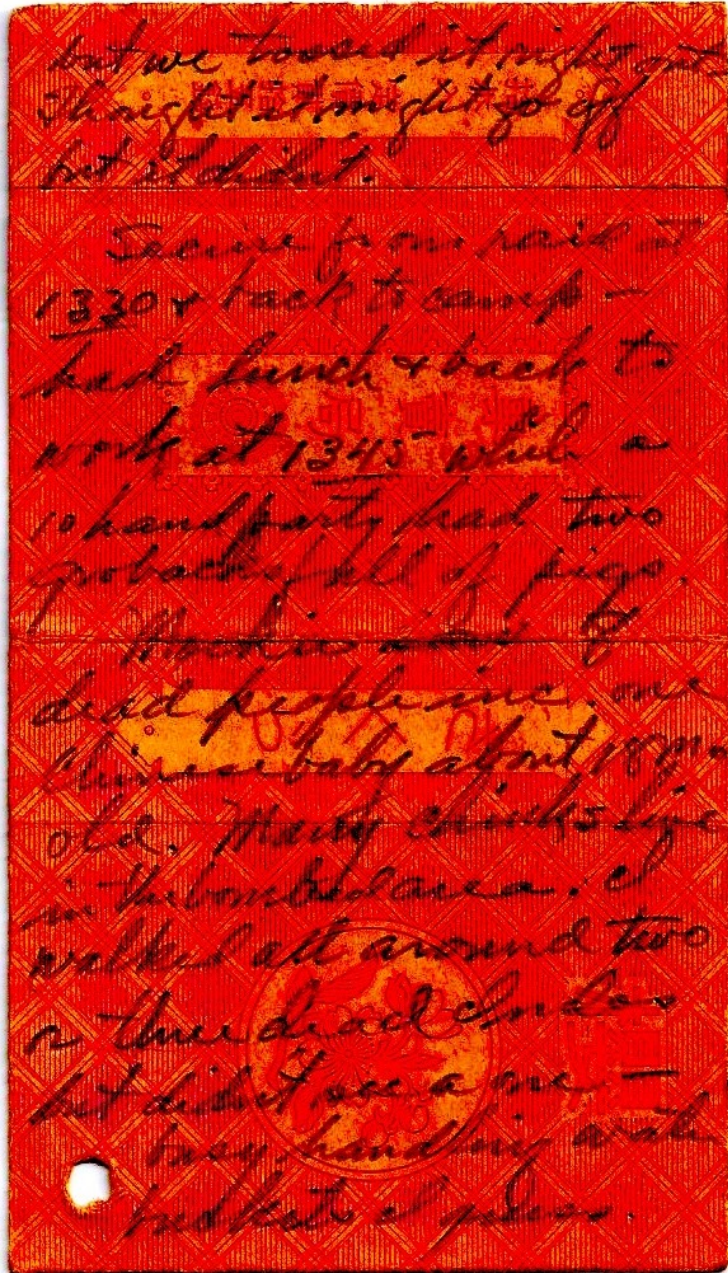 but we tossed it right out
Thought it might go off
but it didn't.
Secure from raid at
1330 & back to camp –
had lunch & back to
work at 1345 while a
10 hand party had two
full of pigs.
of
dead people inc. one
Chinese baby about 18 mo
old. Many chinks live
in the bombed area. I
walked all around two
or three dead Indos
but didn't see a one –
busy handling water
buckets I guess.